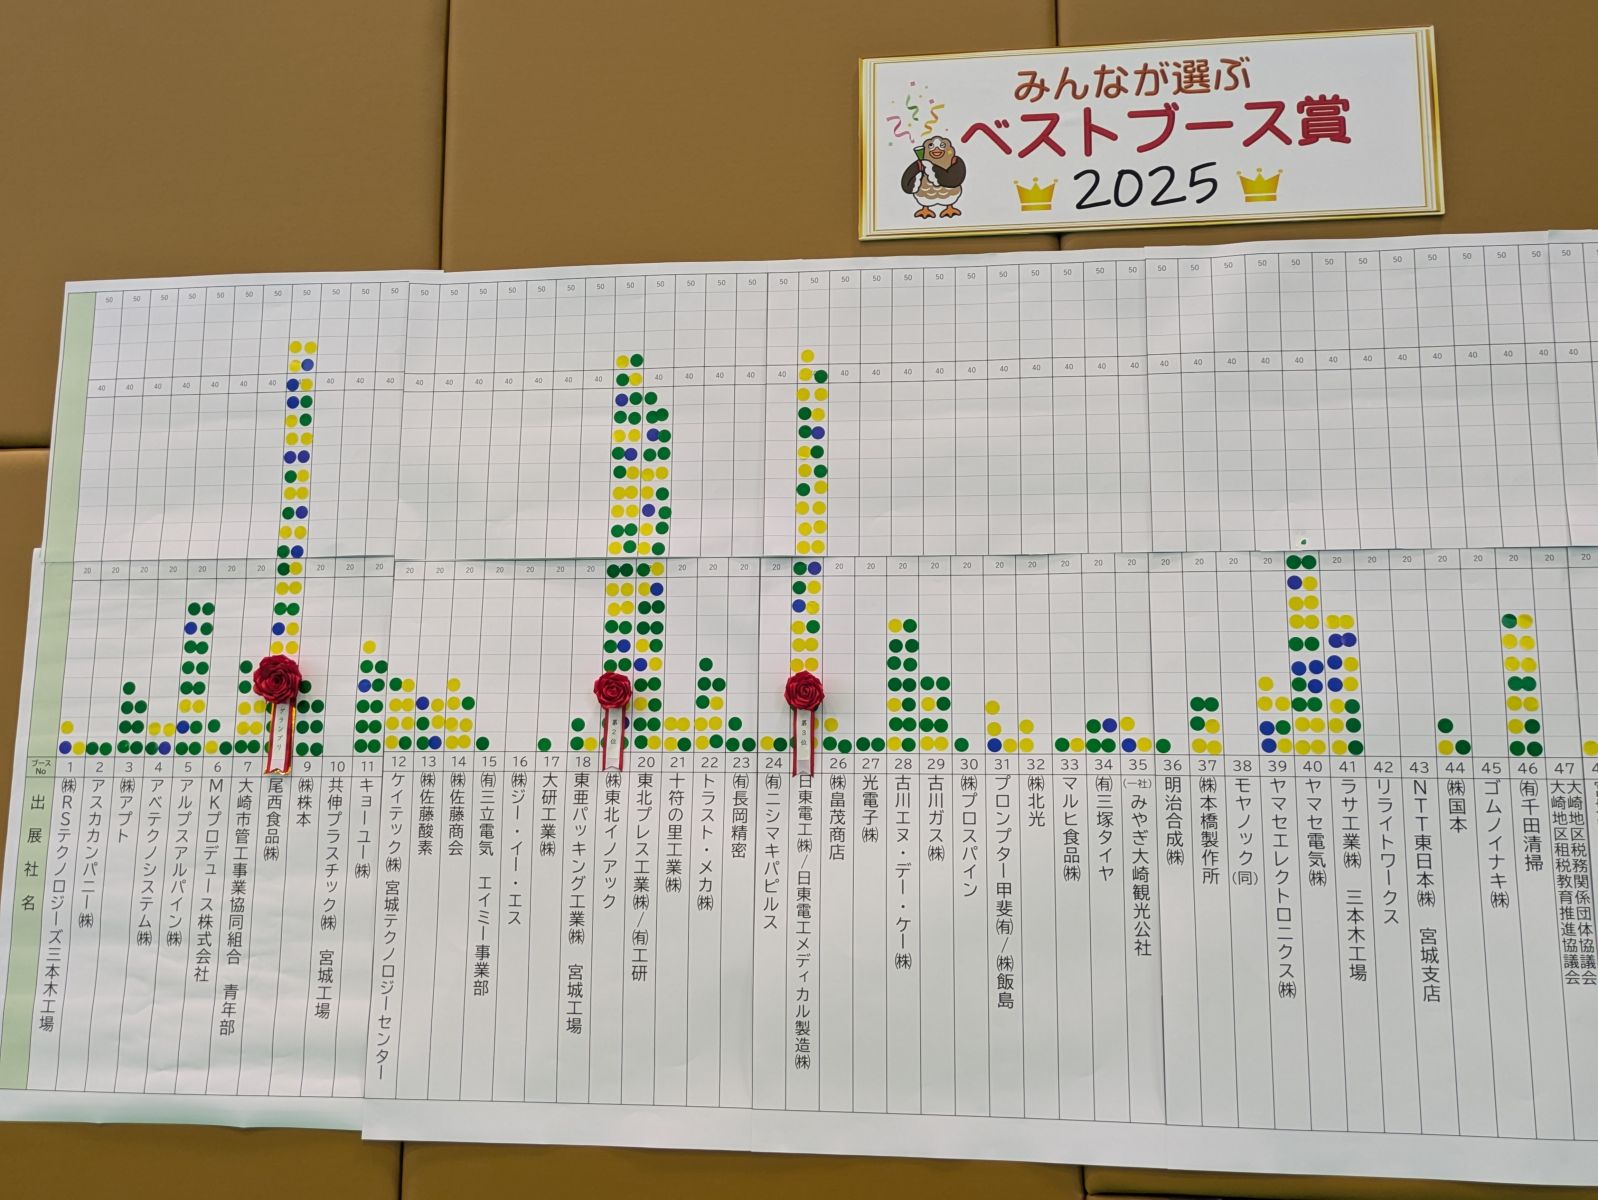 みんなが選ぶ
ベストブース賞
2025
50 50 50 50 50 50 50 50 50 50 50 50 50 50 50 50 50 50 50 50 50 50 50 50 50 50 50 50 50 50 50 50 50 50 50 50 50 50 50 50 50 50 50 50 50 50 50
40 40 40 40 40 40 40 40 40 40 40 40 40 40 40 40 40 40 40 40 40 40 40 40 40 40 40 40 40 40 40 40 40 40 40 40 40 40 40
20 20 20 20 20 20 20 20 20 20 20 20 20 20 20 20 20 20 20 20 20 20 20 20 20 20 20 20 20 20 20 20 20 20 20 20 20 20 20 20
グランプリ
第2位
第3位
ブースNo
出展社名
1 ㈱RSテクノロジーズ三本木工場
2 アスカカンパニー㈱
3 ㈱アプト
4 アベテクノシステム㈱
5 アルプスアルパイン㈱
6 MKプロデュース株式会社
7 大崎市管工事業協同組合 青年部
尾西食品㈱
9 ㈱株本
10 共伸プラスチック㈱ 宮城工場
11 キョーユー㈱
12 ケイテック㈱ 宮城テクノロジーセンター
13 ㈱佐藤酸素
14 ㈱佐藤商会
15 ㈲三立電気 エイミー事業部
16 ㈱ジ・イー・エス
17 大研工業㈱
18 東亜パッキング工業㈱ 宮城工場
㈱東北イノアック
20 東北プレス工業㈱/㈲工研
21 十符の里工業㈱
22 トラスト・メカ㈱
23 ㈲長岡精密
24 ㈲ニシマキパピルス
日東電工㈱/日東電工メディカル製造㈱
26 ㈱畠茂商店
27 光電子㈱
28 古川エヌ・デー・ケー㈱
29 古川ガス㈱
30 ㈱プロスパイン
31 プロンプター甲斐㈲/㈱飯島
32 ㈱北光
33 マルヒ食品㈱
34 ㈲三塚タイヤ
35 (一社)みやぎ大崎観光公社
36 明治合成㈱
37 ㈱本橋製作所
38 モヤノック(同)
39 ヤマセエレクトロニクス㈱
40 ヤマセ電気㈱
41 ラサ工業㈱ 三本木工場
42 リライトワークス
43 NTT東日本㈱ 宮城支店
44 ㈱国本
45 ゴムノイナキ㈱
46 ㈲千田清掃
47 大崎地区税務関係団体協議会
大崎地区租税教育推進協議会